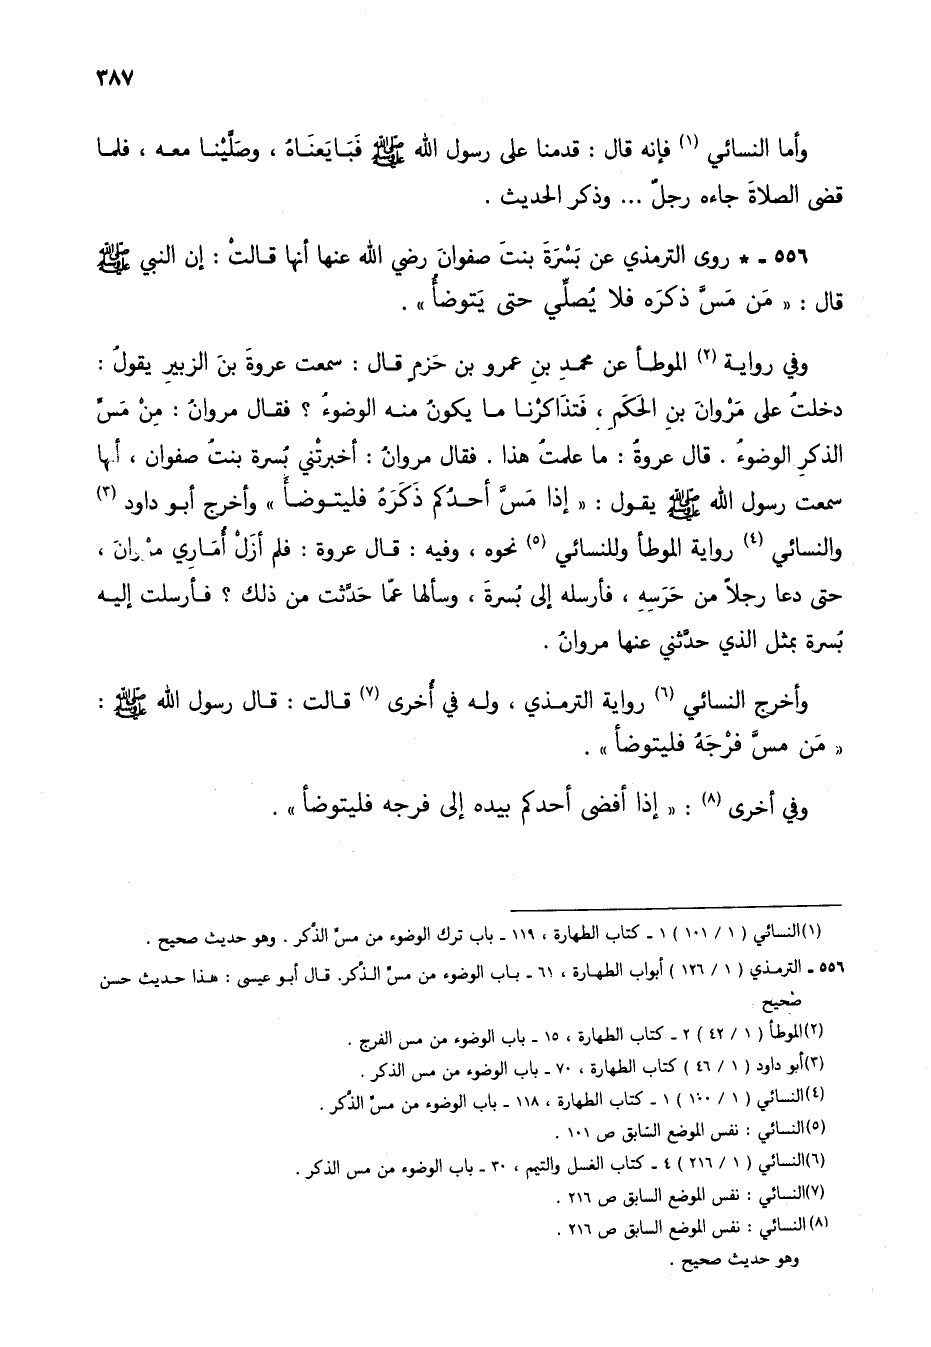 ٣٨٧
وأما النسائي (١) فإنه قال : قدمنا على رسول الله ﷺ فَبَايَعنَاهُ ، وصَلَّيْنـا معـه ، فلمـا
قضى الصلاةَ جاءه رجلٌ ... وذكر الحديث .
٥٥٦ ـ * روى الترمذي عن بَسْرَةَ بنتَ صفوانَ رضي الله عنها أنها قـالتْ : إن النبي ﷺ
قال : « مَن مَسَّ ذكرَه فلا يُصلِّي حتى يَتوضأُ » .
وفي روايـة (٢) الموطـأ عن محمدِ بنِ عمرو بن حَزمٍ قـال : سمعت عروةَ بنَ الزبيرِ يقولُ :
دخلتُ على مَرْوانَ بنِ الحَكَمِ ، فَتذَاكرْنـا مـا يكونُ منـه الوضوءُ ؟ فقـال مروانُ : مِنْ مَسِّ
الذكرِ الوضوءُ . قال عروةُ : ما علمتُ هذا . فقال مروانُ : أخبرتْني بُسرة بنتُ صفوان ، أنها
سمعت رسول الله ﷺ يقـول : « إذا مَسَّ أحـدُكم ذَكَرَهُ فليتـوضـأْ » وأخرج أبـو داود (٣)
والنسائي (٤) رواية الموطأ وللنسائي (٥) نحوه ، وفيه : قـال عروة : فلم أزَلْ أُمَارِي مرْوانَ ،
حتى دعا رجلاً من حَرَسِهِ ، فأرسله إلى بُسرةَ ، وسألها عمّا حَدَّثت من ذلك ؟ فـأرسلت إليـه
بُسرة بمثل الذي حدَّثني عنها مروانُ .
وأخرج النسائي (٦) رواية الترمـذي ، ولـه في أُخرى (٧) قـالت : قـال رسول الله ﷺ :
« مَن مسَّ فرْجَهُ فليتوضأ » .
وفي أخرى (٨) : « إذا أفضى أحدكم بيده إلى فرجه فليتوضأ » .
(١) النسائي ( ١ / ١٠١ ) ١ ـ كتاب الطهارة ، ١١٩ ـ باب ترك الوضوء من مسِّ الذَّكر . وهو حديث صحيح .
٥٥٦ ـ الترمـذي ( ١ / ١٢٦ ) أبواب الطهـارة ، ٦١ ـ بـاب الوضوء من مسِّ الـذَّكر. قـال أبـو عيسى : هـذا حـديث حسن
صحيح
(٢) الموطأ ( ١ / ٤٢ ) ٢ ـ كتاب الطهارة ، ١٥ ـ باب الوضوء من مس الفرج .
(٣) أبو داود ( ١ / ٤٦ ) كتاب الطهارة ، ٧٠ ـ باب الوضوء من مس الذكر .
(٤) النسائي ( ١ / ١٠٠ ) ١ ـ كتاب الطهارة ، ١١٨ ـ باب الوضوء من مسِّ الذَّكر .
(٥) النسائي : نفس الموضع السّابق ص ١٠١ .
(٦) النسائي ( ١ / ٢١٦ ) ٤ ـ كتاب الغسل والتيم ، ٣٠ ـ باب الوضوء من مس الذكر .
(٧) النسائي : نفس الموضع السابق ص ٢١٦ .
(٨) النسائي : نفس الموضع السابق ص ٢١٦ .
وهو حديث صحيح .